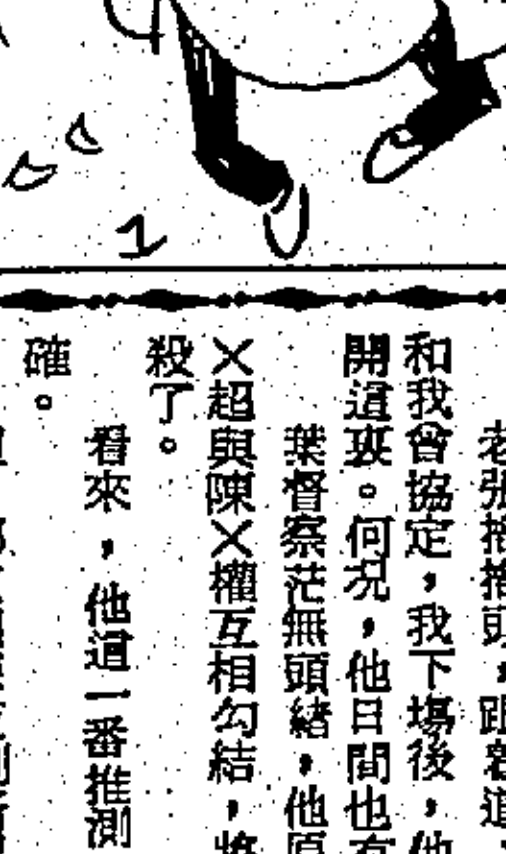 1
老張搖搖頭，跟着道
和我曾協定，我下塲後，他
開這班。何況，他日間也有
葉督察茫無頭緒，他原
×超與陳×權互相勾結，將
殺了。
看來，他這一番推測
確。